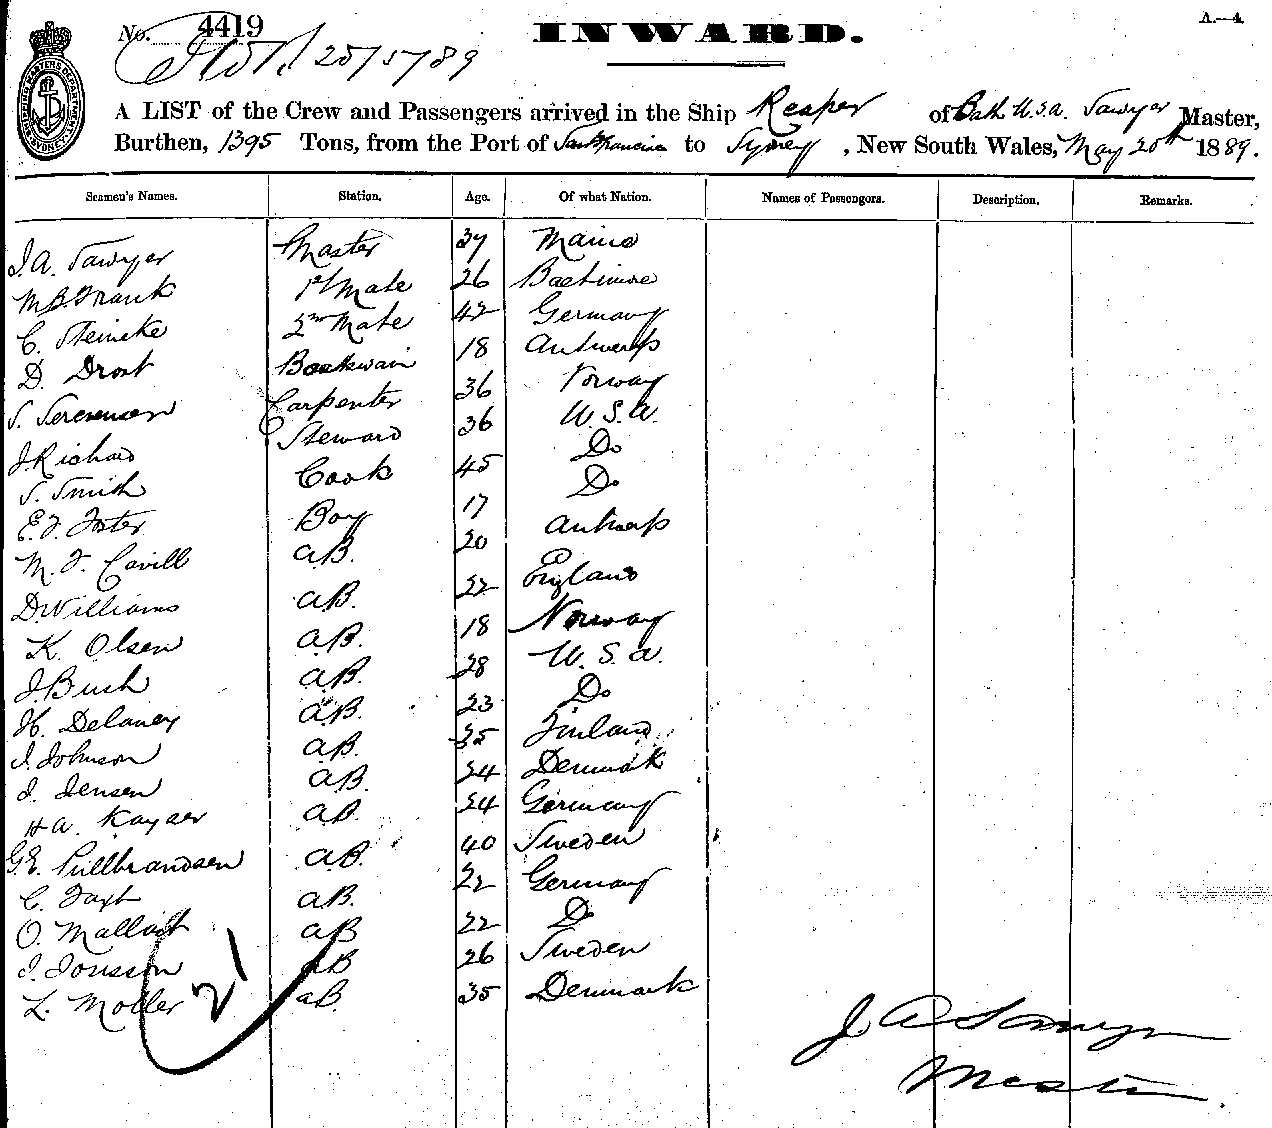 No. 4419
20/5/89
INWARD.
A.—4.
SHIPPING MASTERS DEPARTMENT SYDNEY
A LIST of the Crew and Passengers arrived in the Ship Reaper of Bath U.S.A. Sawyer Master,
Burthen, 1395 Tons, from the Port of San Francisco to Sydney, New South Wales, May 20th 1889.
Seamen's Names. Station. Age. Of what Nation. Names of Passengers. Description. Remarks.
J. A. Sawyer Master 37 Maine
M B Frank 1st Mate 26 Baltimore
C. Steincke 2nd Mate 42 Germany
D. Drost Boatswain 18 Antwerp
S. Serensen Carpenter 36 Norway
J. Richard Steward 36 U.S.A.
S. Smith Cook 45 Do
E. F. Foster Boy 17 Do
M. F. Cavill A.B. 20 Antwerp
D Williams A.B. 22 England
K. Olsen A.B. 18 Norway
J. Bush A.B. 28 U.S.A.
H. Delaney A.B. 23 Do
J. Johnson A.B. 35 Finland
J. Jensen A.B. 24 Denmark
H A. Kayser A.B. 24 Germany
G.E. Pullbrandsen A.B. 40 Sweden
C. Faxt A.B. 22 Germany
O. A.B 22 Do
J. Jonsson A.B 26 Sweden
L. Moller A.B. 35 Denmark
21
J. A Sawyer
Master.